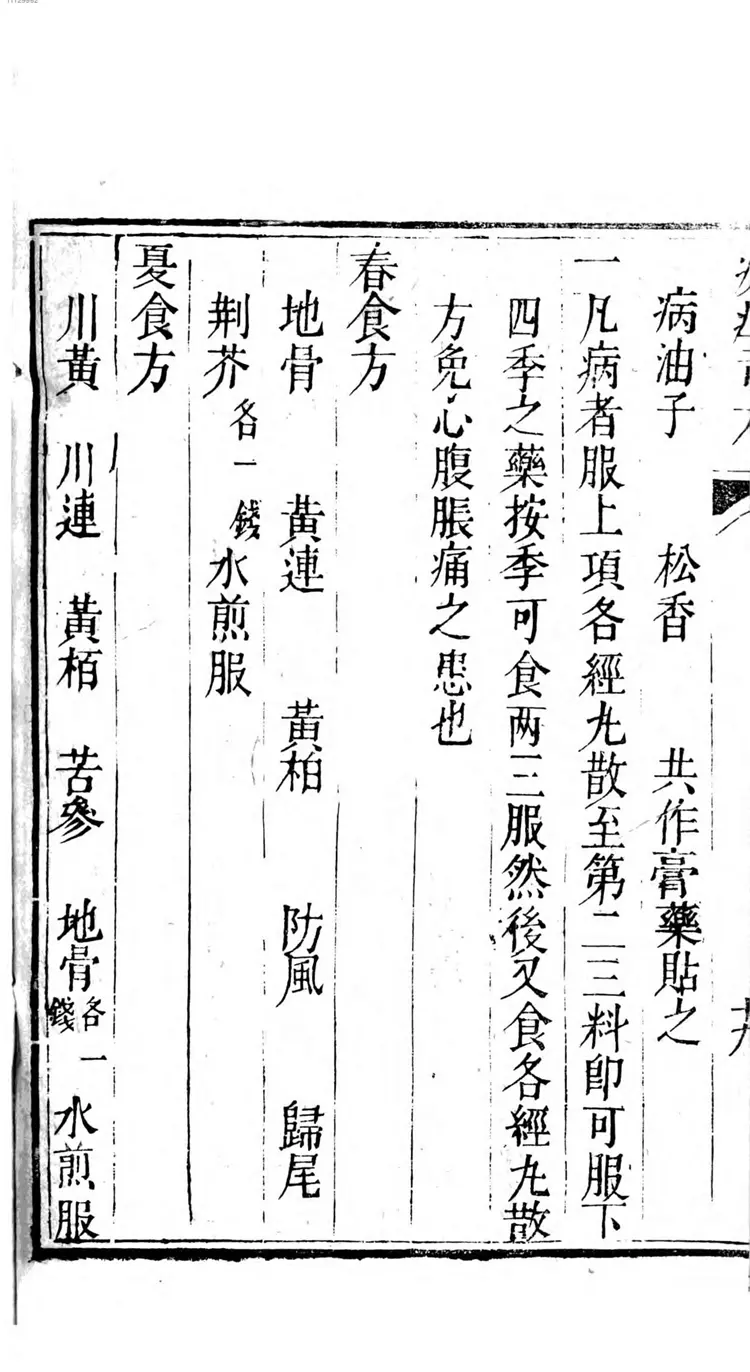 病油子　松香　共作膏藥貼之
一凡病者服上項各經九散至第二三料即可服下
四季之藥按季可食两三服然後又食各經九散
方免心腹脹痛之患也
春食方
地骨　黃連　黃柏　防風　歸尾
荆芥各一錢水煎服
夏食方
川黃　川連　黃栢　苦參　地骨各一錢　水煎服